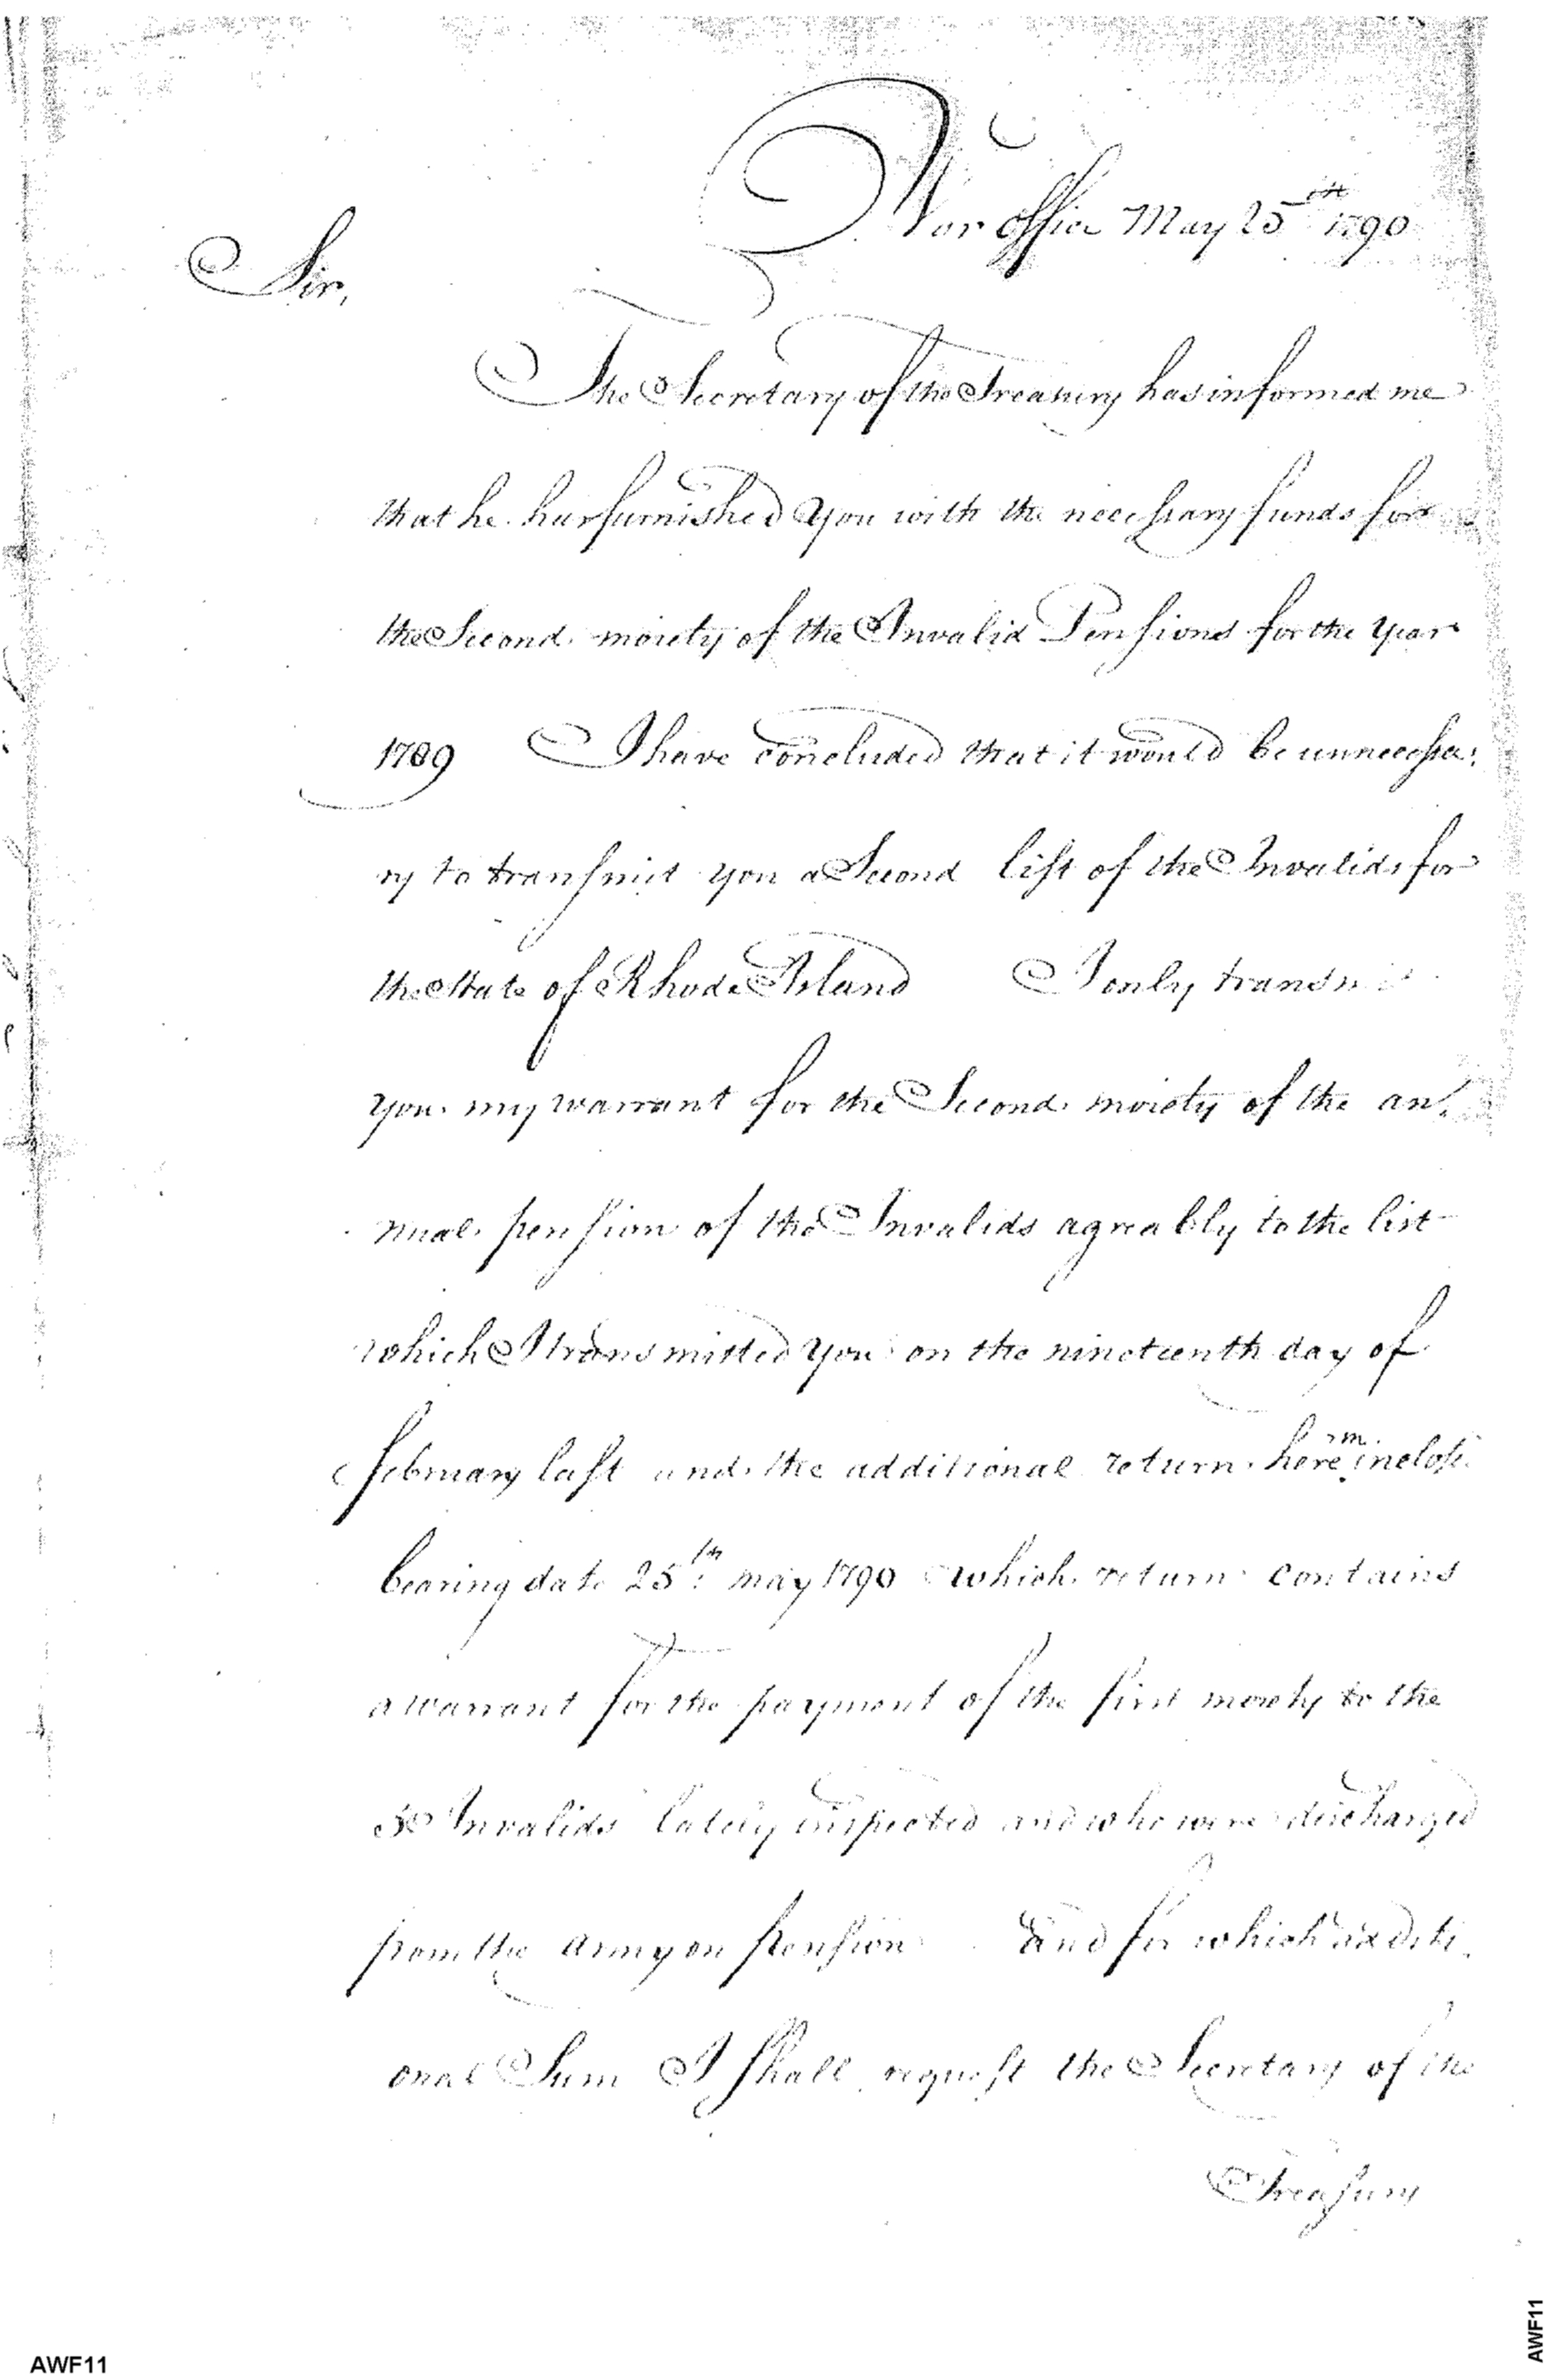 War office May 25th 1790
Sir,
The Secretary of the Treasury has informed me
that he has furnished you with the necessary funds for
the Second moiety of the Invalid Pensions for the year
1789 I have concluded that it would be unnecessa:
ry to transmit you a Second list of the Invalids for
the State of Rhode Island I only transmit
you my warrant for the Second moiety of the an,
nual pension of the Invalids agreably to the list
which I transmitted you on the nineteenth day of
february last and the additional return herein inclos
bearing date 25th may 1790 which return contains
a warrant for the payment of the first moiety to the
Invalids lately inspected and who were discharged
from the army on pension And for which additi
onal Sum I shall request the Secretary of the
Treasury
AWF11
AWF11